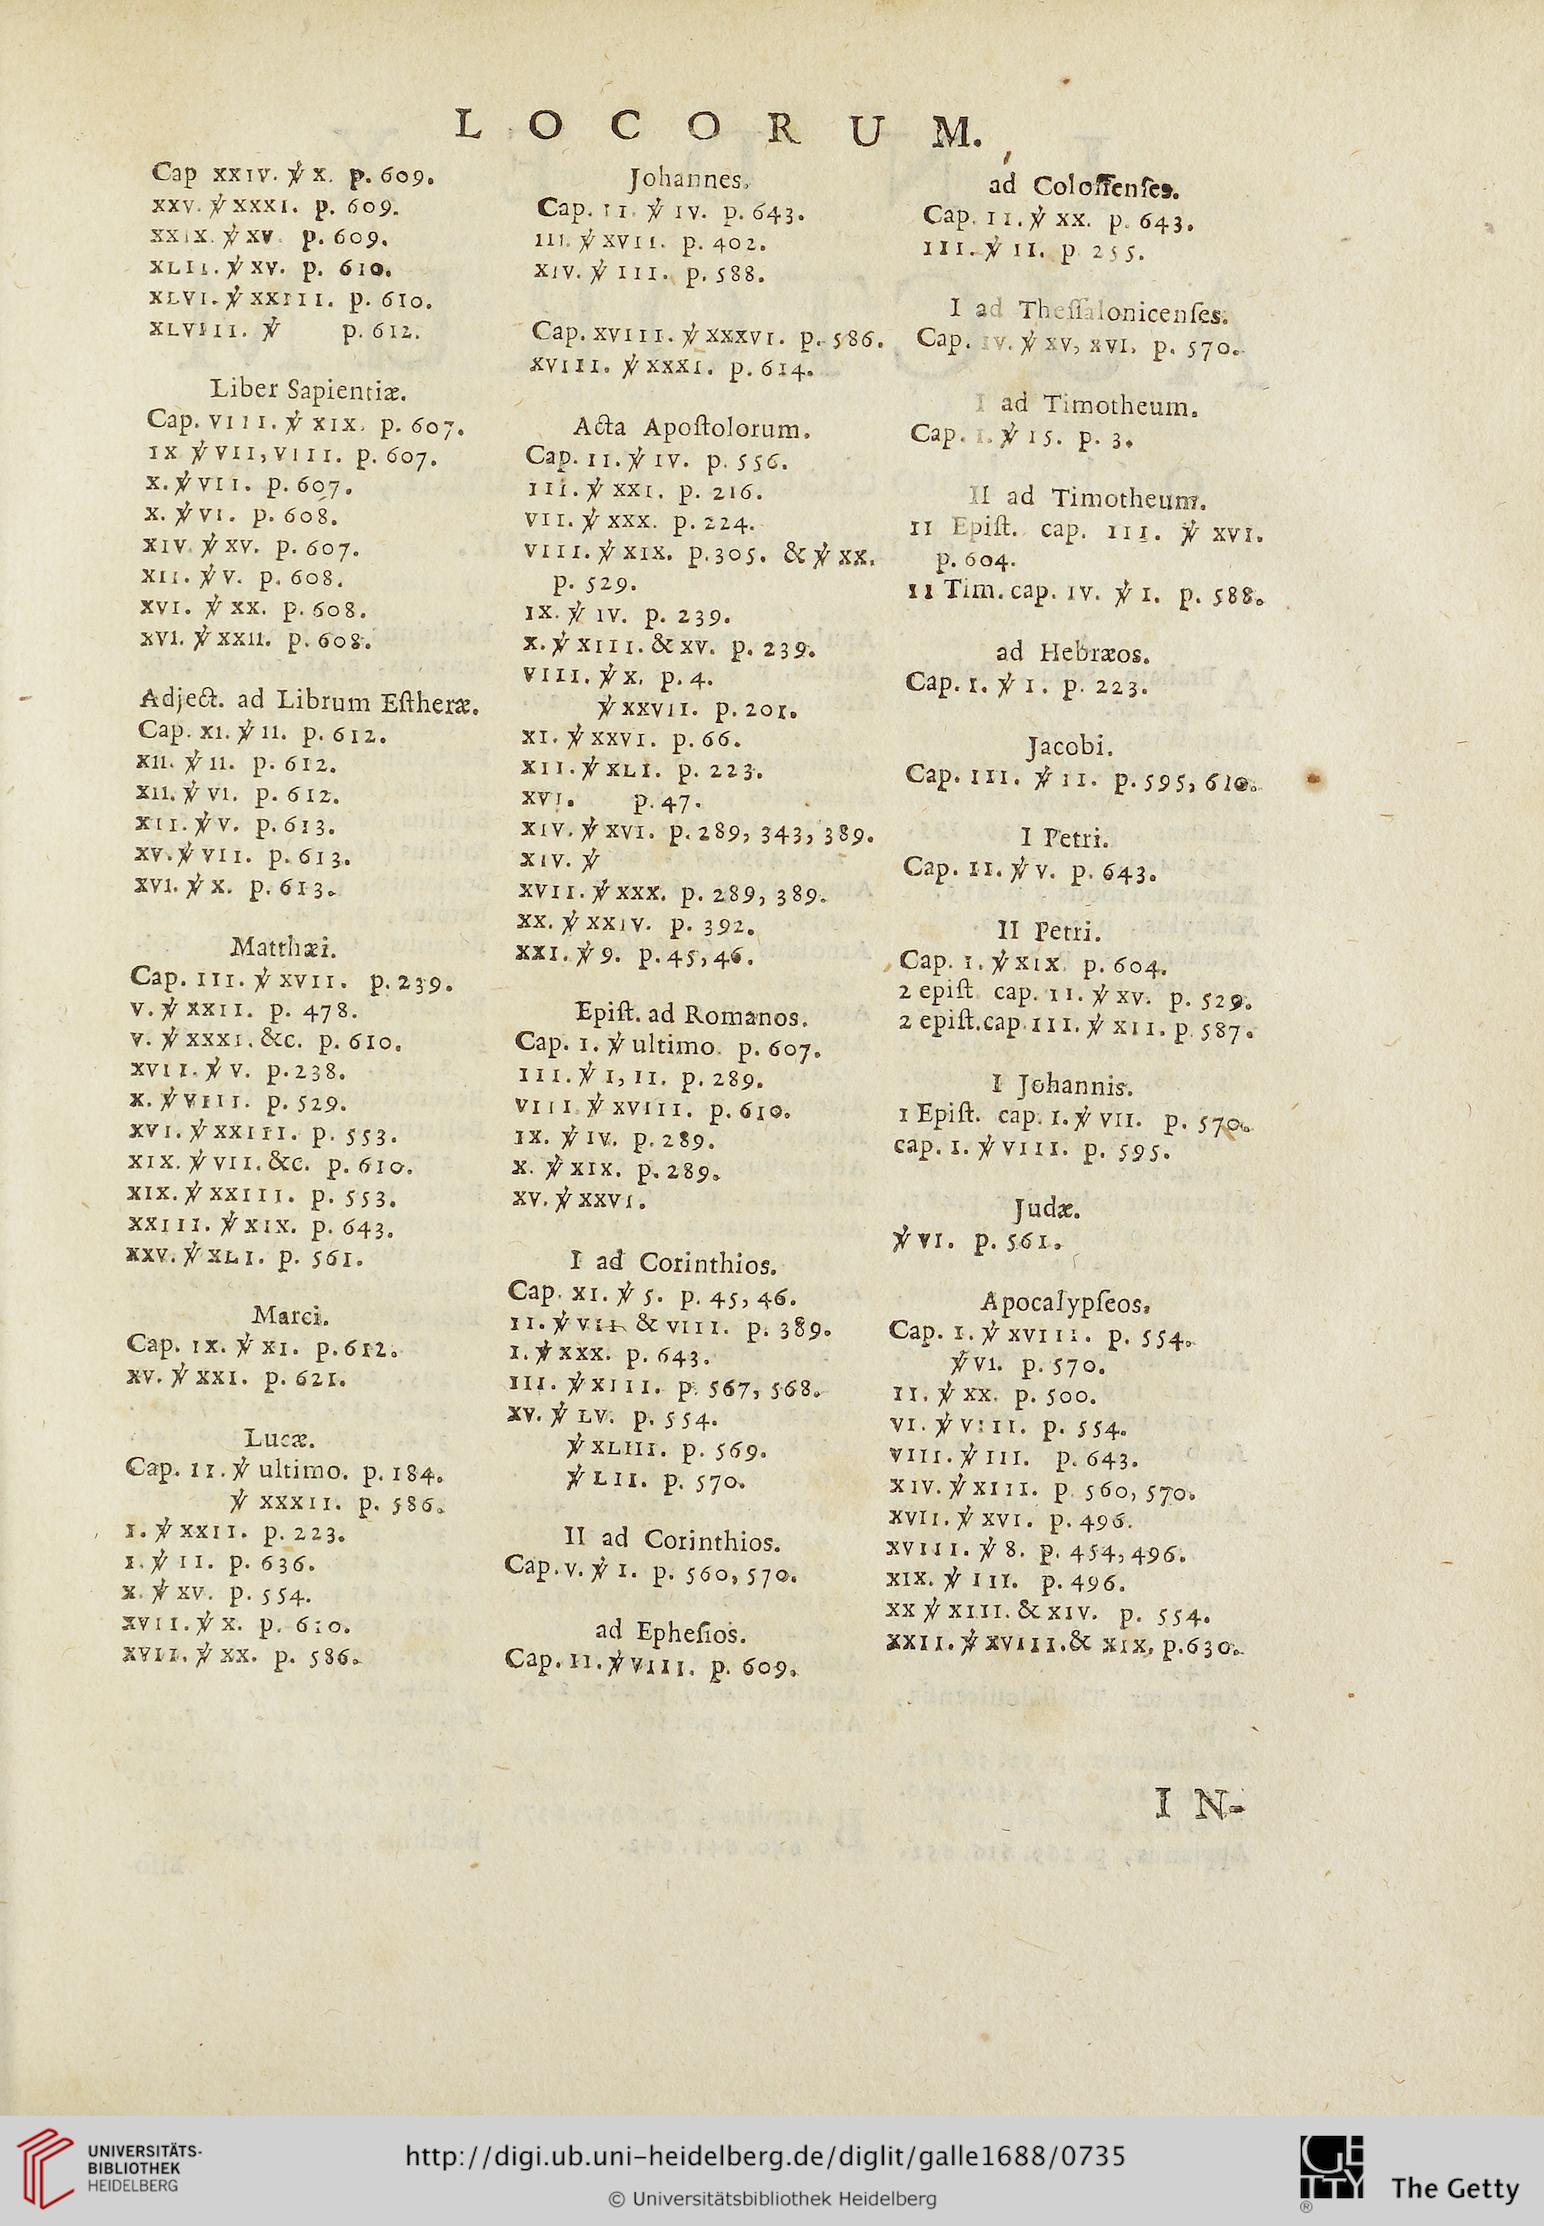 LOCORUM.
Cap XXIV. ℣ X. p. 609.
XXV. ℣ XXXI. p. 609.
XXIX. ℣ XV. p. 609.
XLII. ℣ XV. p. 610.
XLVI. ℣ XXIII. p. 610.
XLVIII. ℣ p. 612.
Liber Sapientiæ.
Cap. VIII. ℣ XIX. p. 607.
IX ℣ VII, VIII. p. 607.
X. ℣ VII. p. 607.
X. ℣ VI. p. 608.
XIV. ℣ XV. p. 607.
XII. ℣ V. p. 608.
XVI. ℣ XX. p. 608.
XVI. ℣ XXII. p. 608.
Adject. ad Librum Eſtheræ.
Cap. XI. ℣ II. p. 612.
XII. ℣ II. p. 612.
XII. ℣ VI. p. 612.
XII. ℣ V. p. 613.
XV. ℣ VII. p. 613.
XVI. ℣ X. p. 613.
Matthæi.
Cap. III. ℣ XVII. p. 239.
V. ℣ XXII. p. 478.
V. ℣ XXXI. &c. p. 610.
XVII. ℣ V. p. 238.
X. ℣ VIII. p. 529.
XVI. ℣ XXIII. p. 553.
XIX. ℣ VII. &c. p. 610.
XIX. ℣ XXIII. p. 553.
XXIII. ℣ XIX. p. 643.
XXV. ℣ XLI. p. 561.
Marci.
Cap. IX. ℣ XI. p. 612.
XV. ℣ XXI. p. 621.
Lucæ.
Cap. II. ℣ ultimo. p. 184.
℣ XXXII. p. 586.
I. ℣ XXII. p. 223.
I. ℣ II. p. 636.
X. ℣ XV. p. 554.
XVII. ℣ X. p. 610.
XVII. ℣ XX. p. 586.
Johannes.
Cap. II. ℣ IV. p. 643.
III. ℣ XVII. p. 402.
XIV. ℣ III. p. 588.
Cap. XVIII. ℣ XXXVI. p. 586.
XVIII. ℣ XXXI. p. 614.
Acta Apoſtolorum.
Cap. II. ℣ IV. p. 556.
III. ℣ XXI. p. 216.
VII. ℣ XXX. p. 224.
VIII. ℣ XIX. p. 305. & ℣ XX.
p. 529.
IX. ℣ IV. p. 239.
X. ℣ XIII. & XV. p. 239.
VIII. ℣ X. p. 4.
℣ XXVII. p. 201.
XI. ℣ XXVI. p. 66.
XII. ℣ XLI. p. 223.
XVI. p. 47.
XIV. ℣ XVI. p. 289, 343, 389.
XIV. ℣
XVII. ℣ XXX. p. 289, 389.
XX. ℣ XXIV. p. 392.
XXI. ℣ 9. p. 45, 46.
Epiſt. ad Romanos.
Cap. I. ℣ ultimo. p. 607.
III. ℣ I, II. p. 289.
VIII. ℣ XVIII. p. 610.
IX. ℣ IV. p. 289.
X. ℣ XIX. p. 289.
XV. ℣ XXVI.
I ad Corinthios.
Cap. XI. ℣ 5. p. 45, 46.
II. ℣ VII & VIII. p. 389.
I. ℣ XXX. p. 643.
III. ℣ XIII. p. 567, 568.
XV. ℣ LV. p. 554.
℣ XLIII. p. 569.
℣ LII. p. 570.
II ad Corinthios.
Cap. V. ℣ I. p. 560, 570.
ad Epheſios.
Cap. II. ℣ VIII. p. 609.
ad Coloſſenſes.
Cap. II. ℣ XX. p. 643.
III. ℣ II. p. 255.
I ad Theſſalonicenſes.
Cap. IV. ℣ XV, XVI. p. 570.
I ad Timotheum.
Cap. I. ℣ 15. p. 3.
II ad Timotheum.
II Epiſt. cap. III. ℣ XVI.
p. 604.
II Tim. cap. IV. ℣ I. p. 588.
ad Hebræos.
Cap. I. ℣ I. p. 223.
Jacobi.
Cap. III. ℣ II. p. 595, 610.
I Petri.
Cap. II. ℣ V. p. 643.
II Petri.
Cap. I. ℣ XIX. p. 604.
2 epiſt. cap. II. ℣ XV. p. 529.
2 epiſt. cap. III. ℣ XII. p. 587.
I Johannis.
I Epiſt. cap. I. ℣ VII. p. 570.
cap. I. ℣ VIII. p. 595.
Judæ.
℣ VI. p. 561.
Apocalypſeos.
Cap. I. ℣ XVIII. p. 554.
℣ VI. p. 570.
II. ℣ XX. p. 500.
VI. ℣ VIII. p. 554.
VIII. ℣ III. p. 643.
XIV. ℣ XIII. p. 560, 570.
XVII. ℣ XVI. p. 496.
XVIII. ℣ 8. p. 454, 496.
XIX. ℣ III. p. 496.
XX ℣ XIII. & XIV. p. 554.
XXII. ℣ XVIII. & XIX. p. 630.
IN-
UNIVERSITÄTS-
BIBLIOTHEK
HEIDELBERG
http://digi.ub.uni-heidelberg.de/diglit/galle1688/0735
© Universitätsbibliothek Heidelberg
GETTY
®
The Getty